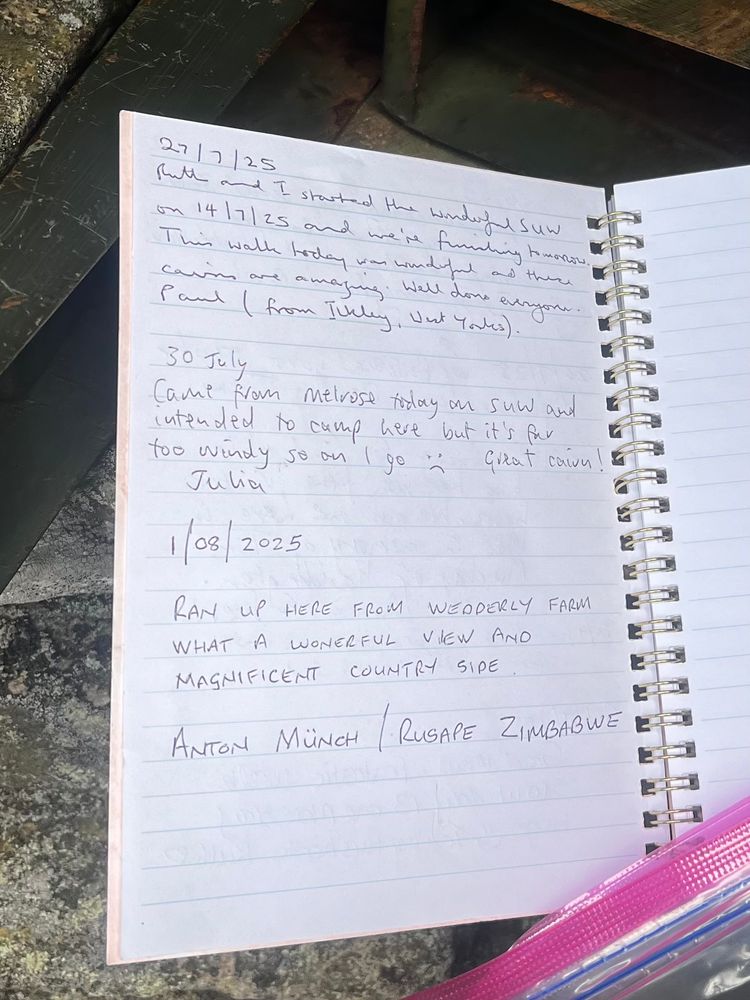 27/7/25
Ruth and I started the wonderful SUW
on 14/7/25 and we're finishing tomorrow.
This walk today was wonderful and these
cairns are amazing. Well done everyone.
Paul (from Ilkley, West Yorks).
30 July
Came from Melrose today on SUW and
intended to camp here but it's far
too windy so on I go :( Great cairn!
Julia
1/08/2025
RAN UP HERE FROM WEDDERLY FARM
WHAT A WONERFUL VIEW AND
MAGNIFICENT COUNTRY SIDE.
ANTON MÜNCH / RUSAPE ZIMBABWE